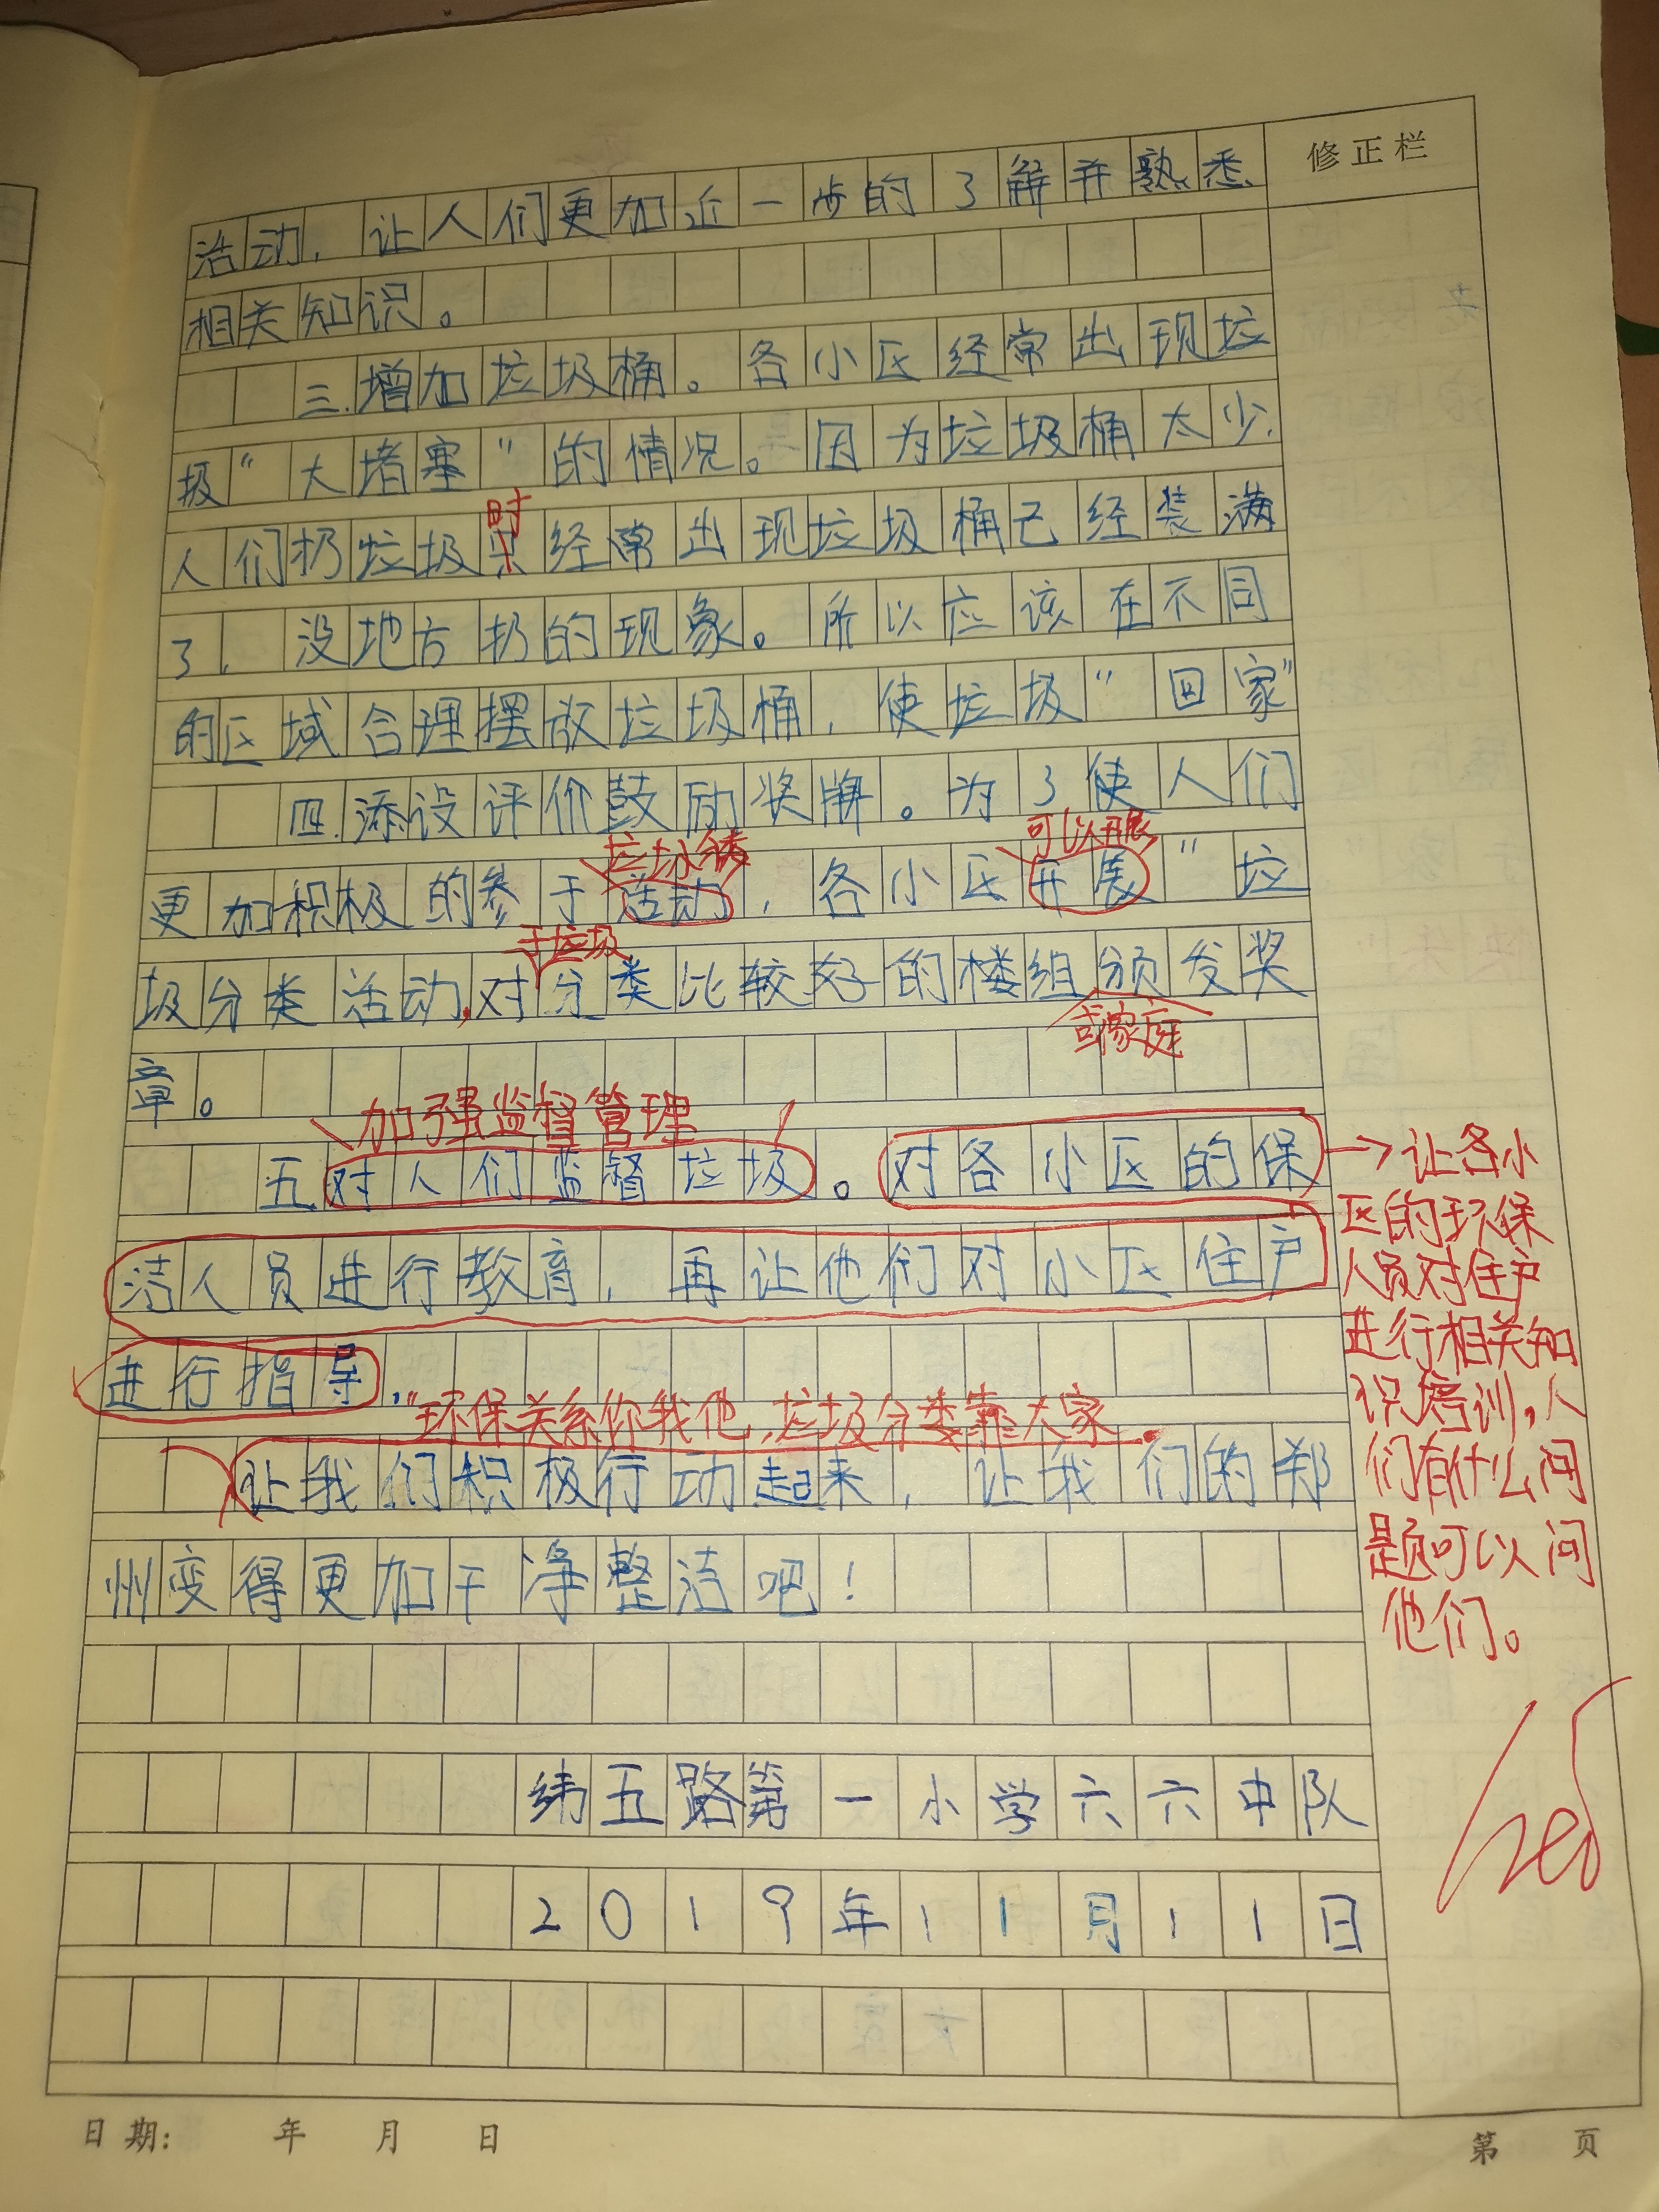 修正栏
活动，让人们更加近一步的了解并熟悉
相关知识。
三.增加垃圾桶。各小区经常出现垃
圾“大堵塞”的情况。因为垃圾桶太少，
时
人们扔垃圾经常出现垃圾桶已经装满
了，没地方扔的现象。所以应该在不同
的区域合理摆放垃圾桶，使垃圾“回家”
四.添设评价鼓励奖牌。为了使人们
垃圾分类 可以开展
更加积极的参于活动，各小区开展“垃
于垃圾
圾分类活动，对分类比较好的楼组颁发奖
或家庭
章。
加强监督管理
五对人们监督垃圾。对各小区的保
洁人员进行教育，再让他们对小区住户
进行指导，
“环保关系你我他，垃圾分类靠大家
让我们积极行动起来，让我们的郑
州变得更加干净整洁吧！
纬五路第一小学六六中队
2019年11月11日
让各小
区的环保
人员对住户
进行相关知
识培训，人
们有什么问
题可以问
他们。
日期： 年 月 日
第 页